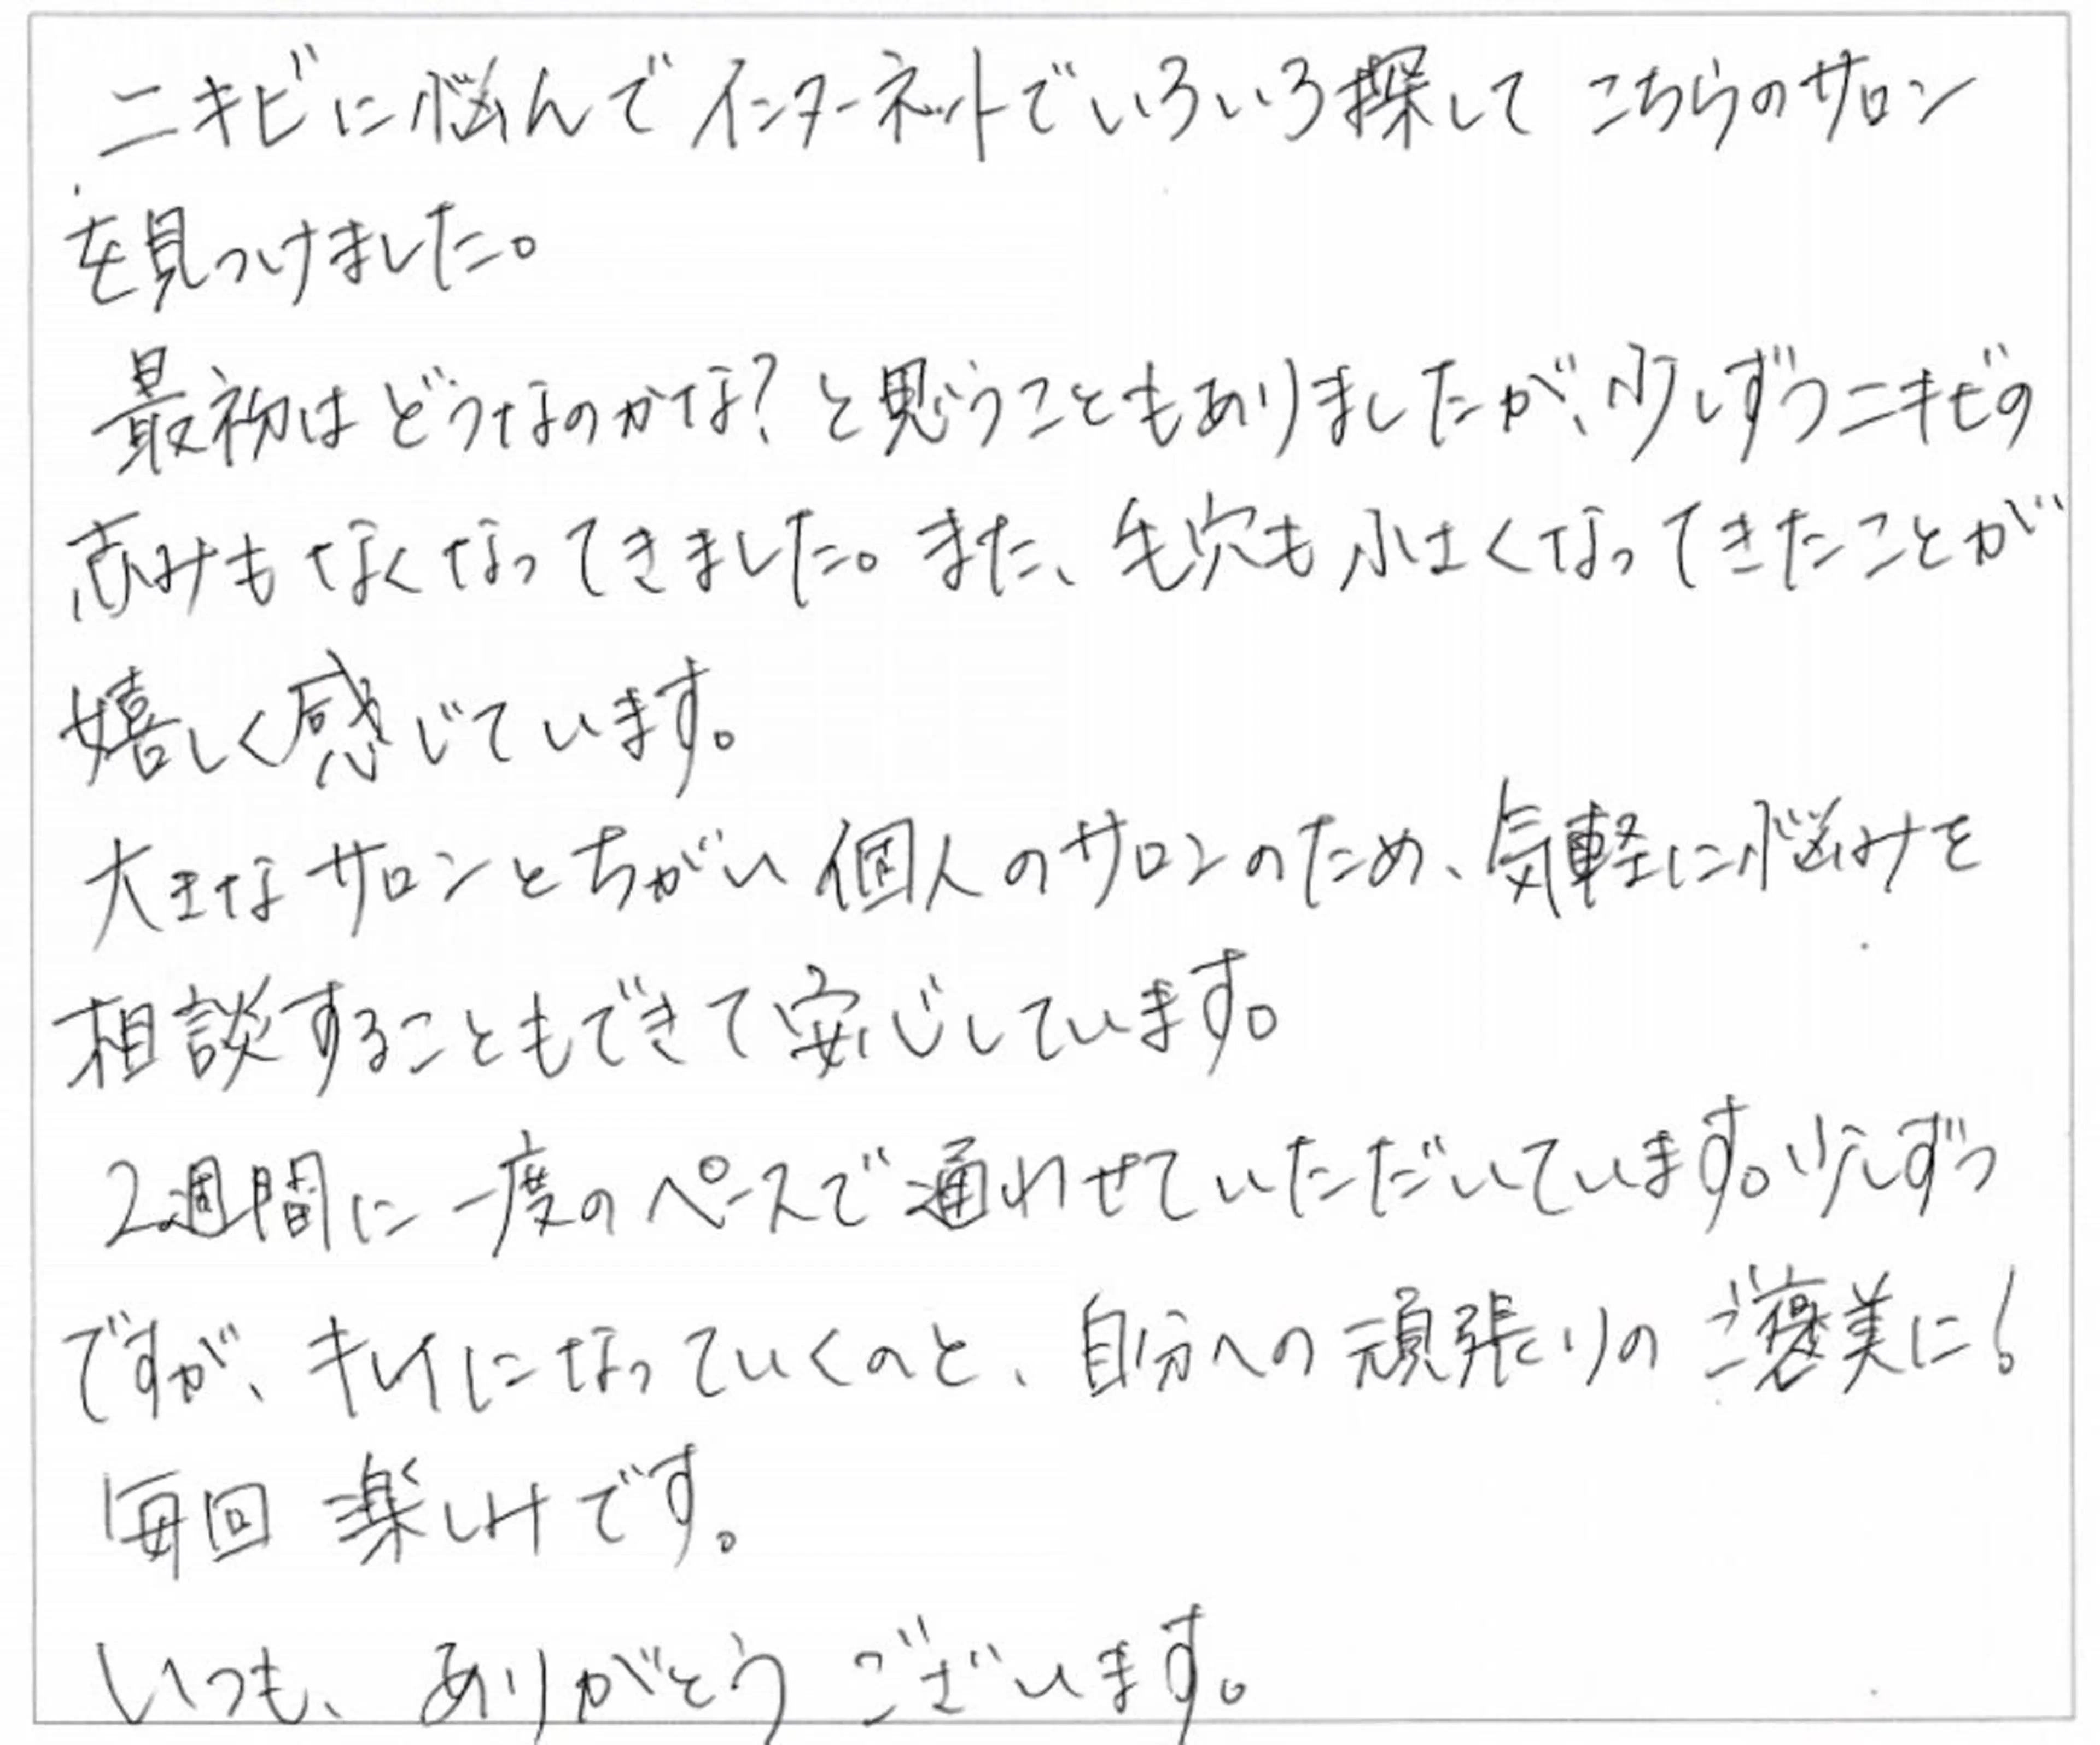 ニキビに悩んでインターネットでいろいろ探して こちらのサロン
を見つけました。
最初はどうなのかな？と思うこともありましたが、少しずつニキビの
赤みもなくなってきました。また、毛穴も小さくなってきたことが
嬉しく感じています。
大きなサロンとちがい個人のサロンのため、気軽に悩みを
相談することもできて安心しています。
2週間に一度のペースで通わせていただいています。少しずつ
ですが、キレイになっていくのと、自分への頑張りのご褒美に！
毎回 楽しみです。
いつも、ありがとう ございます。